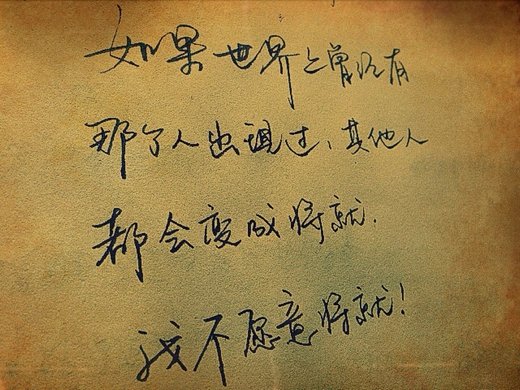 如果世界上曾经有
那个人出现过，其他人
都会变成将就.
我不愿意将就！